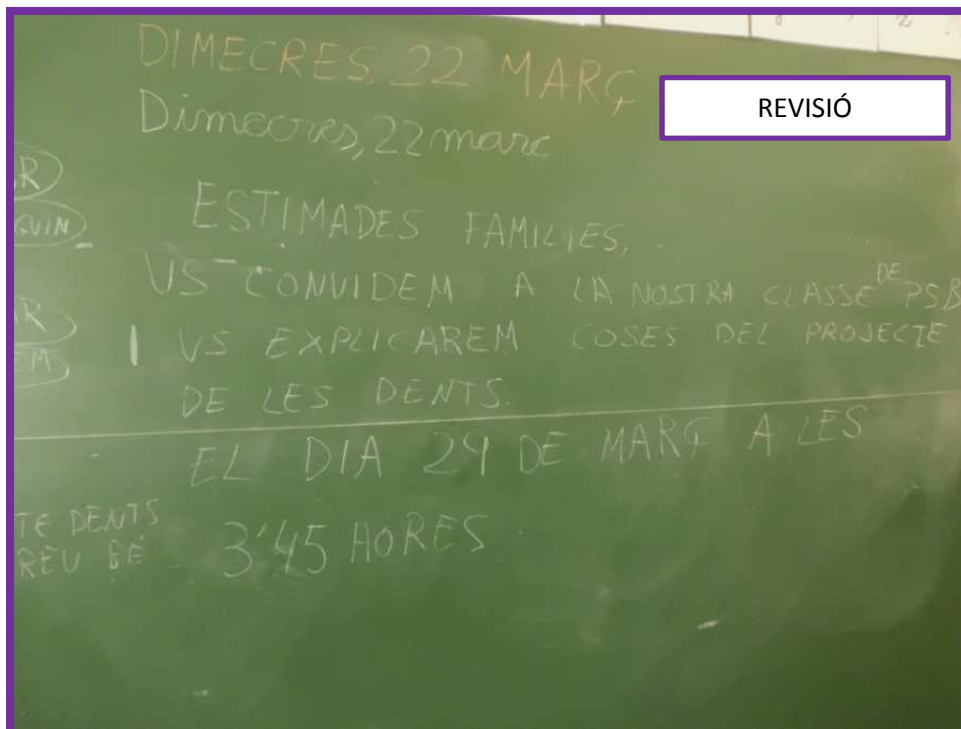 DIMECRES 22 MARÇ
REVISIÓ
Dimecres, 22 març
ESTIMADES FAMILIES,
US CONVIDEM A LA NOSTRA CLASSE DE PSB
US EXPLICAREM COSES DEL PROJECTE
DE LES DENTS.
EL DIA 24 DE MARÇ A LES
3'45 HORES
AR
GUIN
AR
EM
TE DENTS
REU BÉ